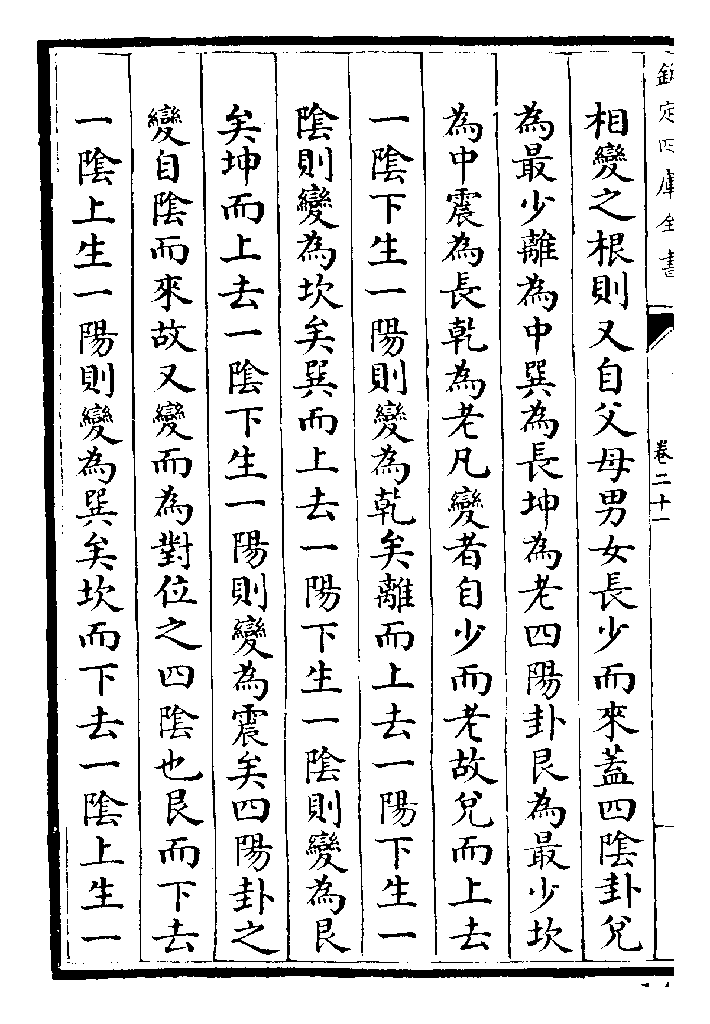 欽定四庫全書
卷二十一
相變之根則又自父母男女長少而來蓋四陰卦兌
為最少離為中巽為長坤為老四陽卦艮為最少坎
為中震為長乾為老凡變者自少而老故兌而上去
一陰下生一陽則變為乾矣離而上去一陽下生一
陰則變為坎矣巽而上去一陽下生一陰則變為艮
矣坤而上去一陰下生一陽則變為震矣四陽卦之
變自陰而來故又變而為對位之四陰也艮而下去
一陰上生一陽則變為巽矣坎而下去一陰上生一